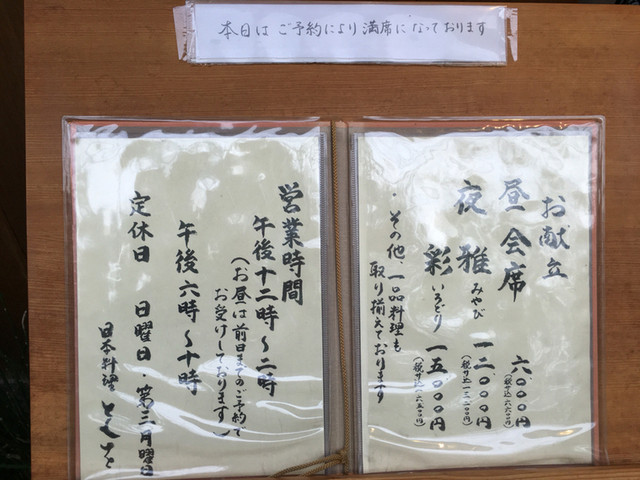 本日はご予約により満席になっております
お献立
昼 会席 六〇〇〇円
(税サ込六六〇〇円)
夜 雅 みやび 一二〇〇〇円
(税サ込一三二〇〇円)
彩 いろどり 一五〇〇〇円
(税サ込一六五〇〇円)
・その他、一品料理も
取り揃えております
営業時間
午後十二時〜二時
(お昼は前日までのご予約で
お受けしております。)
午後六時〜十時
定休日 日曜日・第三月曜日
日本料理